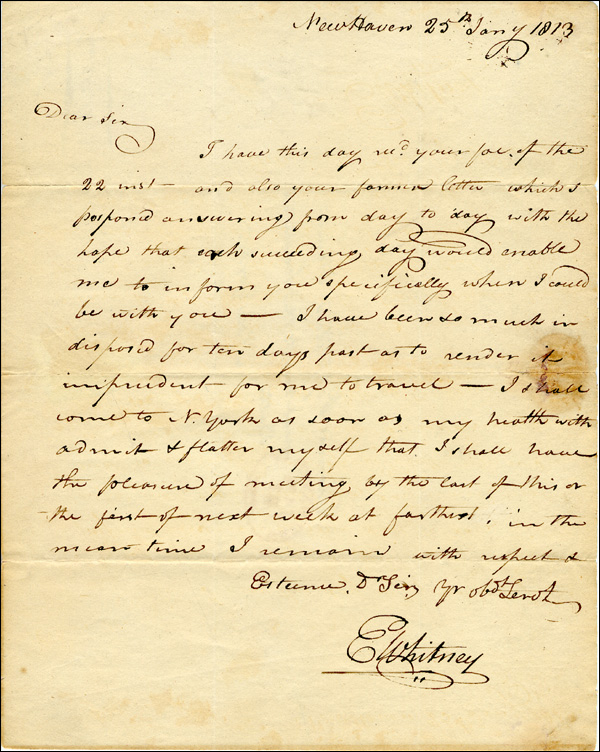 New Haven 25th Jany 1813
Dear Sir
I have this day recd. your fav. of the
22 inst — and also your former letter which I
posponed answering from day to day with the
hope that each succeeding day would enable
me to inform you specifically when I could
be with you — I have been so much in
disposed for ten days past as to render it
imprudent for me to travel — I shall
come to N. York as soon as my health will
admit & flatter myself that I shall have
the pleasure of meeting by the last of this or
the first of next week at farthest. in the
mean time I remain with respect &
Esteeme. Dr Sir, Yr obdt Servt
E Whitney